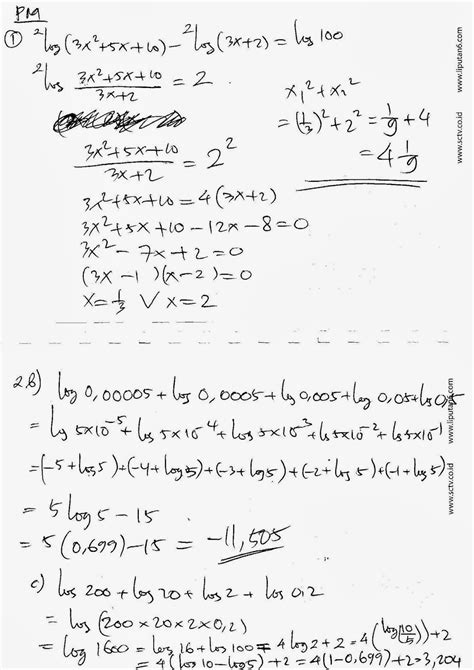 PM
① ²log(3x²+5x+10) - ²log(3x+2) = log 100
²log (3x²+5x+10)/(3x+2) = 2
(3x²+5x+10)/(3x+2) = 2²
3x²+5x+10 = 4(3x+2)
3x²+5x+10-12x-8=0
3x²-7x+2=0
(3x-1)(x-2)=0
x=⅓ ∨ x=2
x₁²+x₂²
=(⅓)²+2² = 1/9+4
= 4 1/9
www.liputan6.com
www.sctv.co.id
2.b) log 0,00005 + log 0,0005 + log 0,005 + log 0,05 + log 0,5
= log 5x10⁻⁵ + log 5x10⁻⁴ + log 5x10⁻³ + log 5x10⁻² + log 5x10⁻¹
=(-5+log5)+(-4+log5)+(-3+log5)+(-2+log5)+(-1+log5)
= 5 log 5 - 15
= 5(0,699)-15 = -11,505
c) log 200 + log 20 + log 2 + log 0,2
= log (200 x 20 x 2 x 0,2)
= log 1600 = log 16 + log 100 = 4 log 2 + 2 = 4(log 10/5)+2
= 4(log 10 - log 5) + 2 = 4(1-0,699)+2 = 3,204
www.liputan6.com
www.sctv.co.id